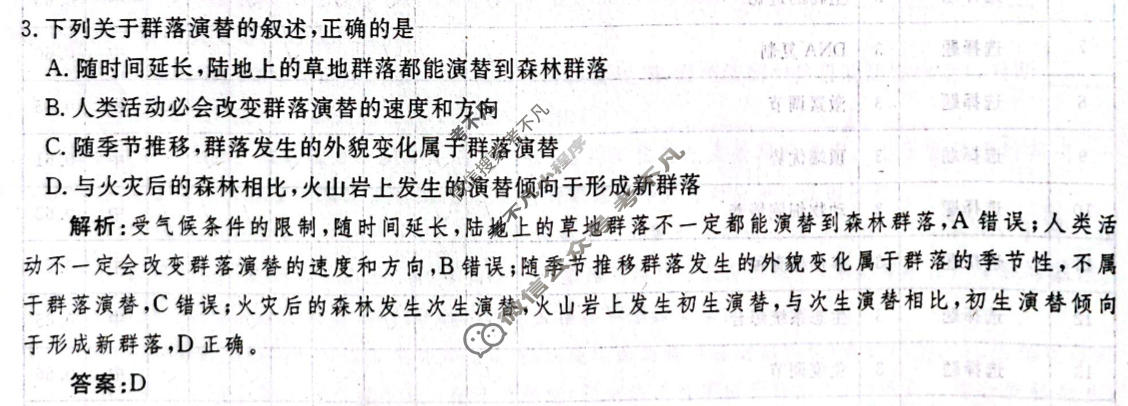 3. 下列关于群落演替的叙述,正确的是
A. 随时间延长,陆地上的草地群落都能演替到森林群落
B. 人类活动必会改变群落演替的速度和方向
C. 随季节推移,群落发生的外貌变化属于群落演替
D. 与火灾后的森林相比,火山岩上发生的演替倾向于形成新群落
解析:受气候条件的限制,随时间延长,陆地上的草地群落不一定都能演替到森林群落,A 错误;人类活
动不一定会改变群落演替的速度和方向,B 错误;随季节推移群落发生的外貌变化属于群落的季节性,不属
于群落演替,C 错误;火灾后的森林发生次生演替,火山岩上发生初生演替,与次生演替相比,初生演替倾向
于形成新群落,D 正确。
答案:D
考不凡
微信搜索考不凡小程序
微信公众号 考不凡